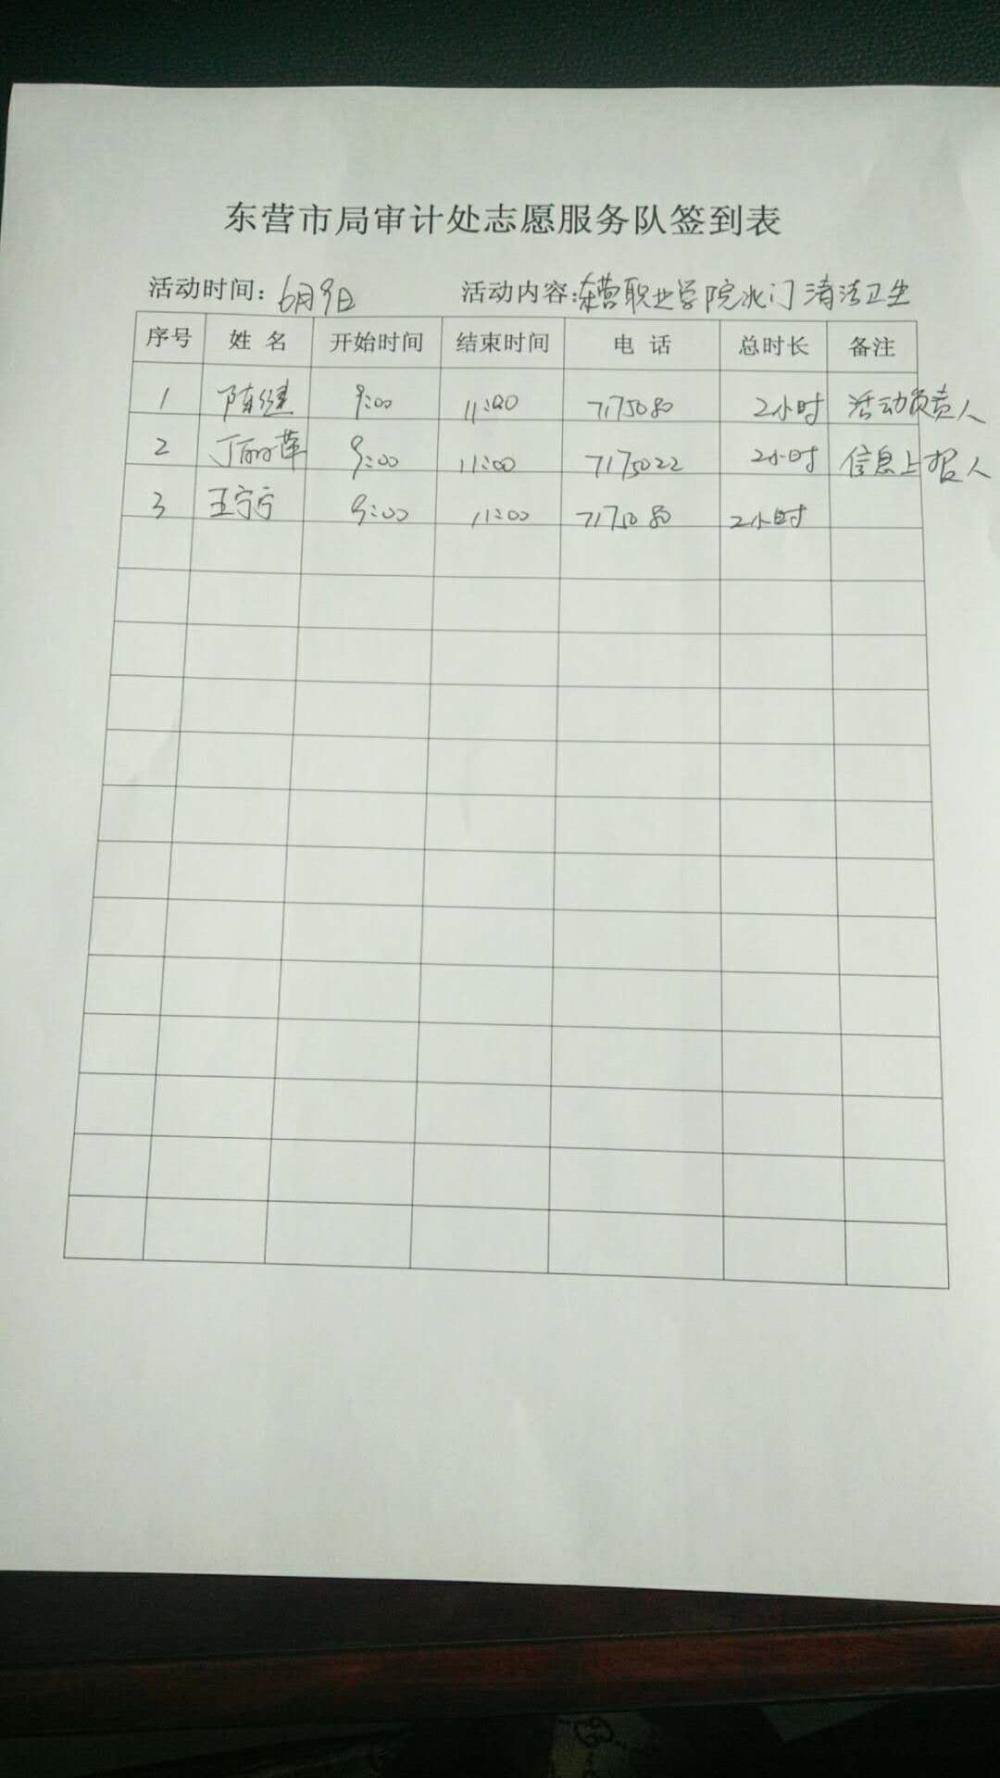 东营市局审计处志愿服务队签到表
活动时间：6月9日 活动内容：东营职业学院北门清洁卫生
序号 姓名 开始时间 结束时间 电话 总时长 备注
1 陈继 9:00 11:00 7175080 2小时 活动负责人
2 丁丽萍 9:00 11:00 7175022 2小时 信息上报人
3 王宁宁 9:00 11:00 7175080 2小时